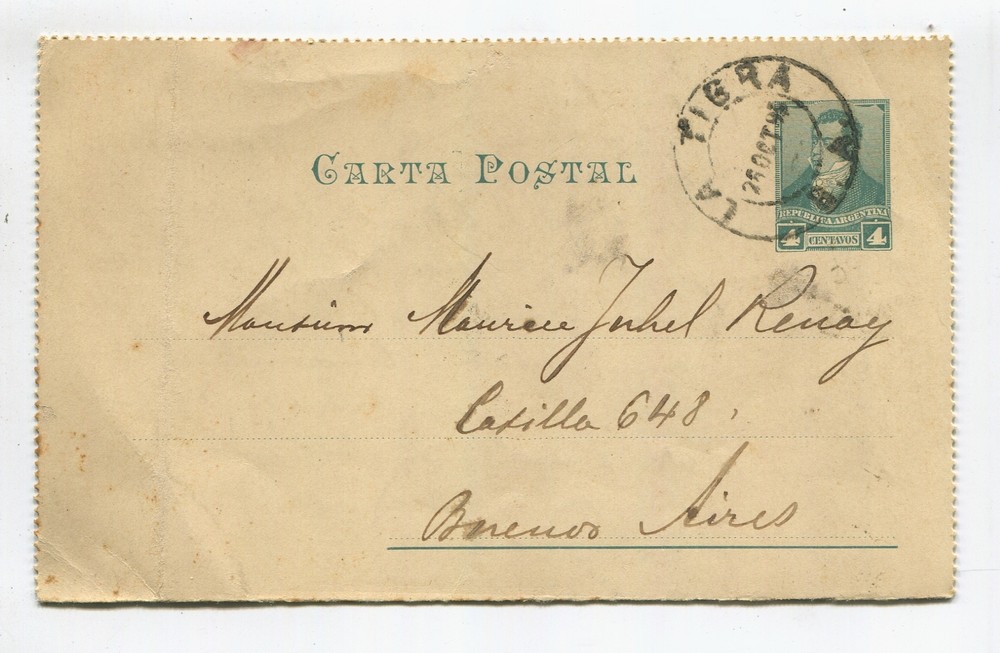 CARTA POSTAL
LA TIGRA
26 OCT 95
REPUBLICA ARGENTINA
4 CENTAVOS 4
Monsieur Maurice Juhel Renoy
Casilla 648.
Buenos Aires